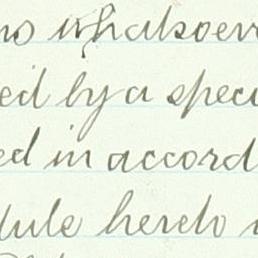 ns whatsoever
ed by a speci
ed in accord
dule hereto